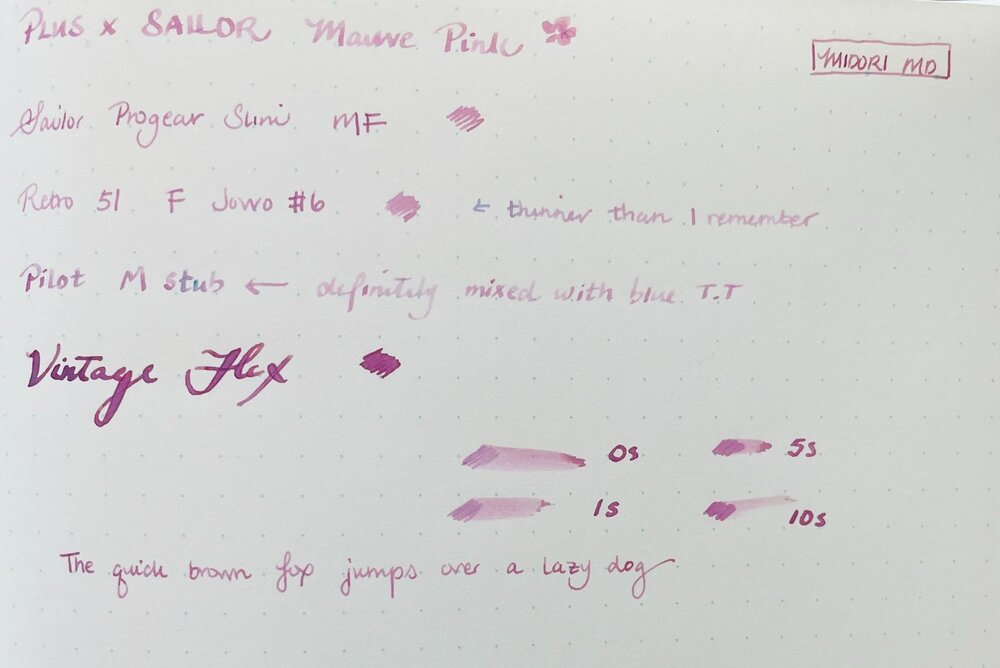 PLUS x SAILOR Mauve Pink
MIDORI MD
Sailor Progear Slim MF
Retro 51 F Jowo #6 ← thinner than I remember
Pilot M stub ← definitely mixed with blue T.T
Vintage Flex
0s 5s
1s 10s
The quick brown fox jumps over a lazy dog